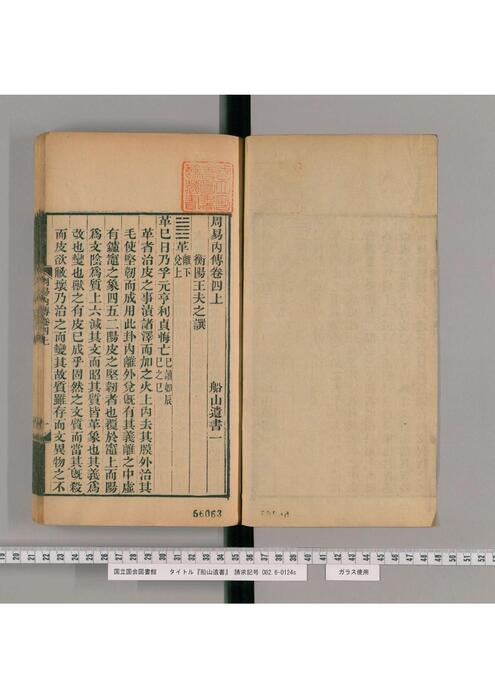 周易內傳卷四上　船山遺書一
衡陽王夫之譔
革 離下 兌上
革巳日乃孚元亨利貞悔亡 巳讀如辰巳之巳
革者治皮之事漬諸澤而加之火上內去其膜外治其
毛使堅韌而成用此卦內離外兌旣有其義離之中虛
有鑪竈之象四五二陽皮之堅韌者也覆於竈上而陽
爲文陰爲質上六減其文而昭其質皆革象也其義爲
改也變也獸之有皮已成乎固然之文質而當其旣殺
而皮欲敝壞乃治之而變其故質雖存而文異物之不
周易內傳卷四上
一
66063
19 20 21 22 23 24 25 26 27 28 29 30 31 32 33 34 35 36 37 38 39 40 41 42 43 44 45 46 47 48 49 50 51 52
国立国会図書館　タイトル『船山遺書』　請求記号 082.6-0124s
ガラス使用